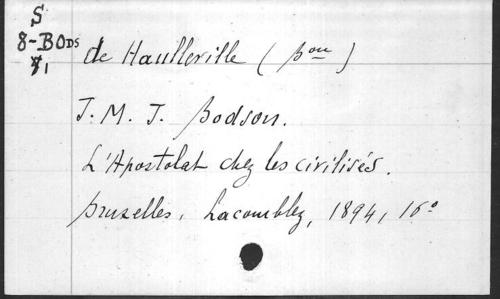 S
8-BODS
71
de Haulleville (Bon)
J. M. J. Bodson.
L'Apostolat chez les civilisés.
Bruxelles, Lacomblez, 1894, 16°